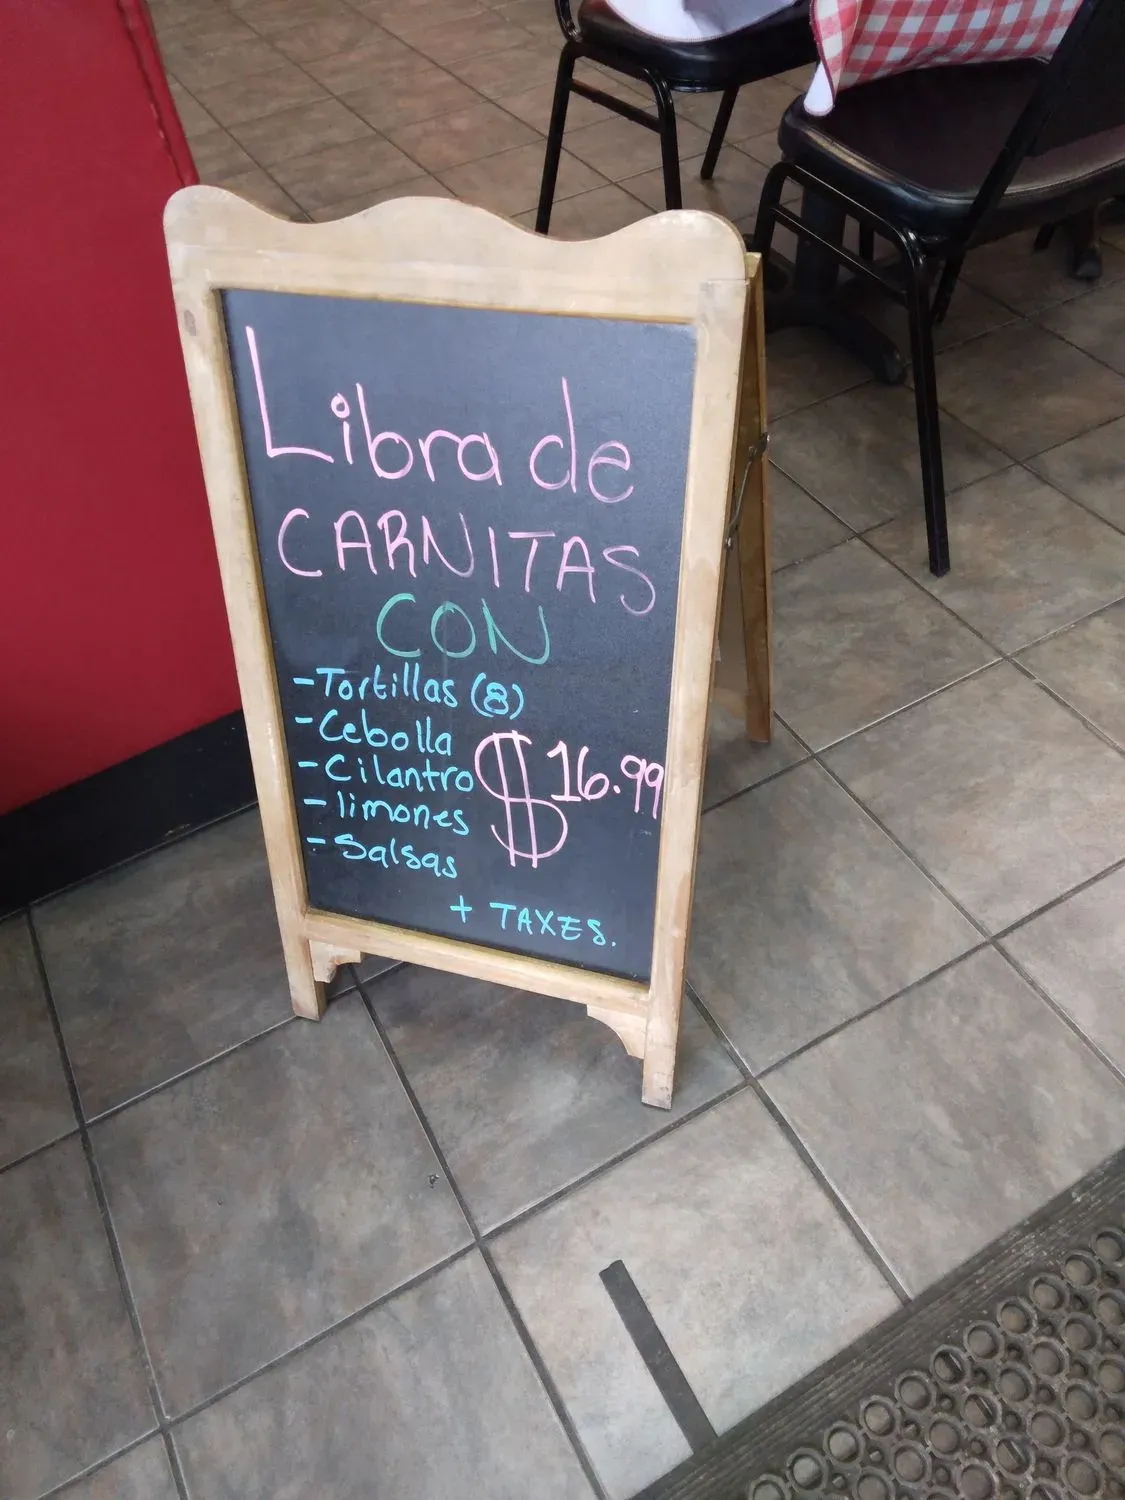 Libra de
CARNITAS
CON
-Tortillas (8)
-Cebolla
-Cilantro
-limones
-Salsas
$16.99
+ TAXES.